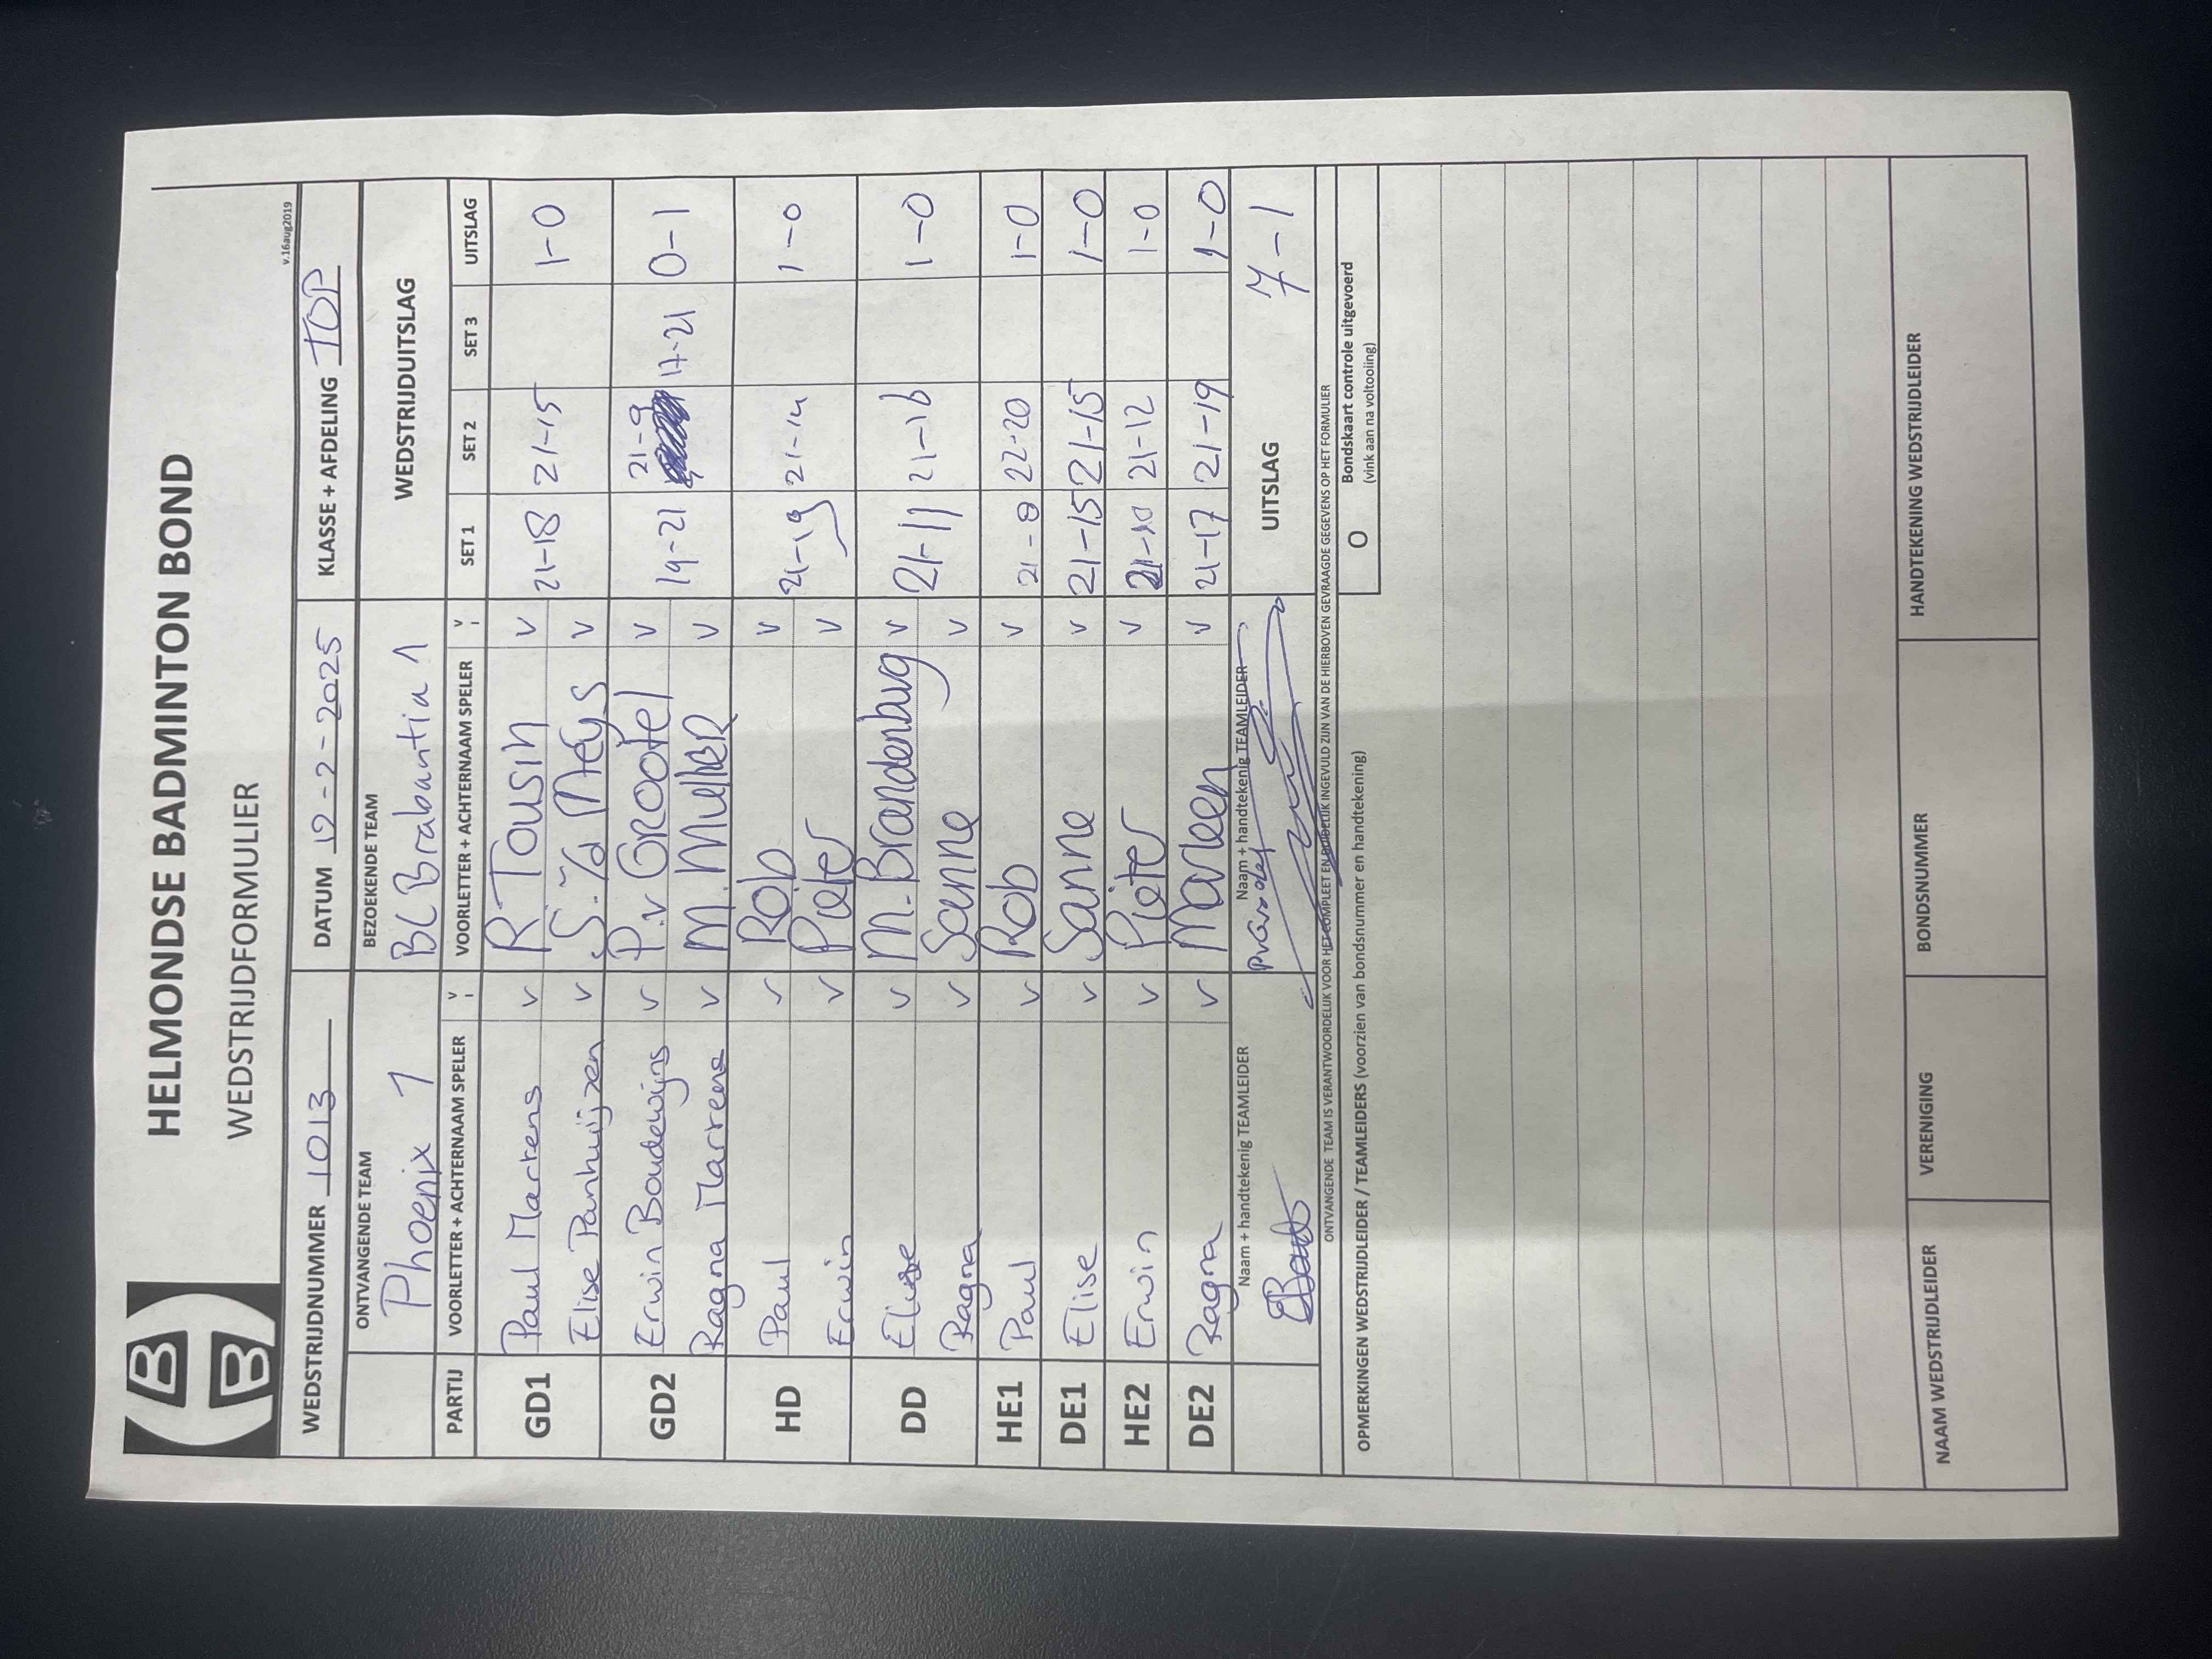 HELMONDSE BADMINTON BOND
WEDSTRIJDFORMULIER
v.16aug2019
WEDSTRIJDNUMMER 1013 DATUM 19-2-2025 KLASSE + AFDELING TOP
ONTVANGENDE TEAM BEZOEKENDE TEAM WEDSTRIJDUITSLAG
Phoenix 1 BC Brabantia 1
PARTIJ VOORLETTER + ACHTERNAAM SPELER V VOORLETTER + ACHTERNAAM SPELER V SET 1 SET 2 SET 3 UITSLAG
GD1 Paul Martens v R Tousin v 21-18 21-15 1-0
Elise Panhuijzen v S. v/d Meijs v
GD2 Erwin Boudewijns v P. v Grootel v 19-21 21-9 17-21 0-1
Ragna Martens v M. Muller v
HD Paul v Rob v 21-19 21-14 1-0
Erwin v Pieter v
DD Elise v M. Brandenburg v 21-11 21-16 1-0
Ragna v Sanne v
HE1 Paul v Rob v 21-8 22-20 1-0
DE1 Elise v Sanne v 21-15 21-15 1-0
HE2 Erwin v Pieter v 21-10 21-12 1-0
DE2 Ragna v Marleen v 21-17 21-19 1-0
Naam + handtekenig TEAMLEIDER Naam + handtekenig TEAMLEIDER UITSLAG 7-1
ONTVANGENDE TEAM IS VERANTWOORDELIJK VOOR HET COMPLEET EN DUIDELIJK INGEVULD ZIJN VAN DE HIERBOVEN GEVRAAGDE GEGEVENS OP HET FORMULIER
OPMERKINGEN WEDSTRIJDLEIDER / TEAMLEIDERS (voorzien van bondsnummer en handtekening) O Bondskaart controle uitgevoerd
(vink aan na voltooiing)
NAAM WEDSTRIJDLEIDER VERENIGING BONDSNUMMER HANDTEKENING WEDSTRIJDLEIDER